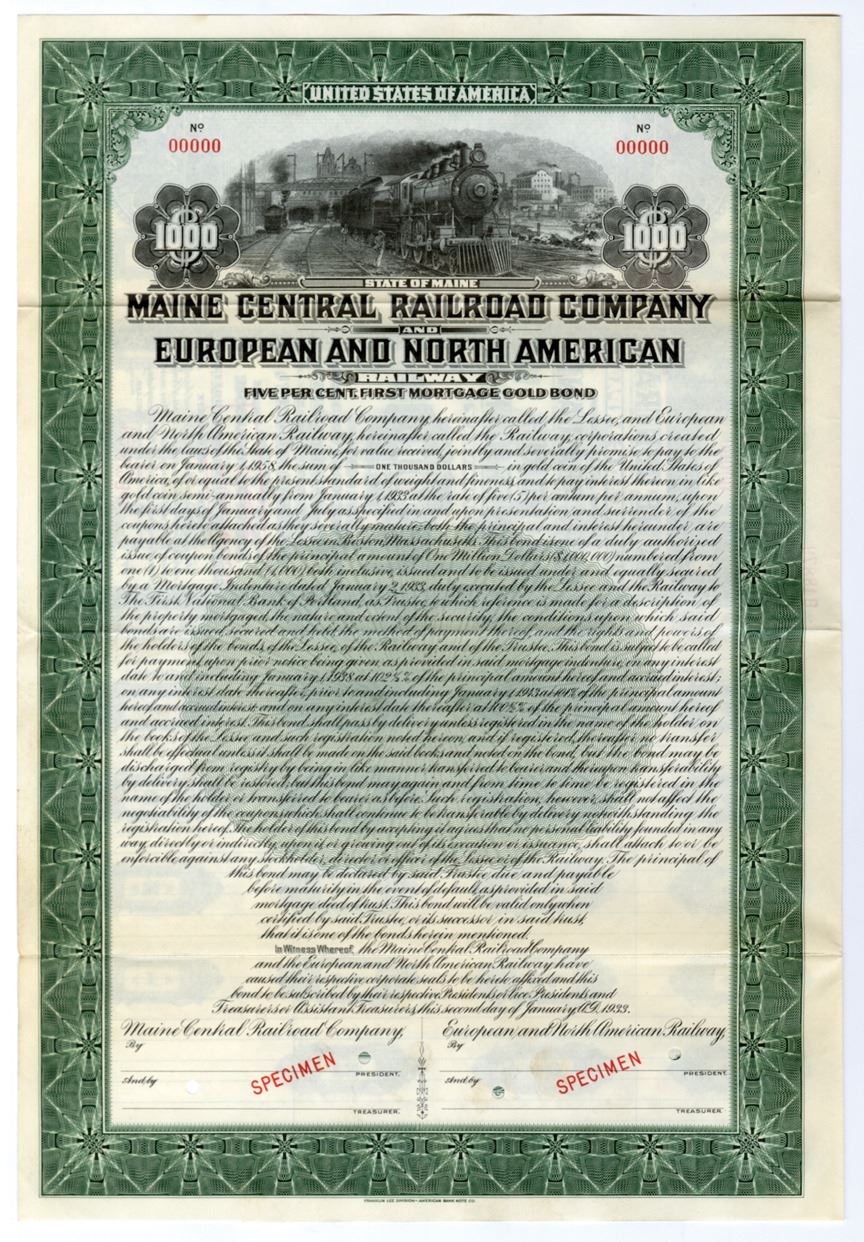 UNITED STATES OF AMERICA
Nº
00000
Nº
00000
$1000
$1000
STATE OF MAINE
MAINE CENTRAL RAILROAD COMPANY
AND
EUROPEAN AND NORTH AMERICAN
RAILWAY
FIVE PER CENT. FIRST MORTGAGE GOLD BOND
Maine Central Railroad Company, hereinafter called the Lessee, and European
and North American Railway, hereinafter called the Railway, corporations created
under the laws of the State of Maine, for value received, jointly and severally promise to pay to the
bearer on January 1, 1958, the sum of ONE THOUSAND DOLLARS in gold coin of the United States of
America, of or equal to the present standard of weight and fineness, and to pay interest thereon in like
gold coin semi-annually from January 1, 1933 at the rate of five (5) per annum per annum, upon
the first days of January and July as specified in and upon presentation and surrender of the
coupons hereto attached as they severally mature, both the principal and interest hereunder are
payable at the Agency of the Lessee in Boston, Massachusetts. This bond is one of a duly authorized
issue of coupon bonds of the principal amount of One Million Dollars ($1,000,000) numbered from
one (1) to one thousand (1,000) both inclusive, issued and to be issued under and equally secured
by a Mortgage Indenture dated January 2, 1933, duly executed by the Lessee and the Railway to
The First National Bank of Portland, as Trustee, to which reference is made for a description of
the property mortgaged, the nature and extent of the security, the conditions upon which said
bonds are issued, secured and held, the method of payment thereof, and the rights and powers of
the holders of the bonds, of the Lessee, of the Railway and of the Trustee. This bond is subject to be called
for payment, upon prior notice being given as provided in said mortgage indenture, on any interest
date to and including January 1, 1938 at 102½% of the principal amount hereof and accrued interest;
on any interest date thereafter, prior to and including January 1, 1943 at 101% of the principal amount
hereof and accrued interest; and on any interest date thereafter at 100½% of the principal amount hereof
and accrued interest. This bond shall pass by delivery unless registered in the name of the holder on
the books of the Lessee and such registration noted hereon, and if registered, thereafter no transfer
shall be effectual unless it shall be made on the said books and noted on the bond, but the bond may be
discharged from registry by being in like manner transferred to bearer and thereupon transferability
by delivery shall be restored; but this bond may again and from time to time be registered in the
name of the holder or transferred to bearer as before. Such registration, however, shall not affect the
negotiability of the coupons, which shall continue to be transferable by delivery notwithstanding the
registration hereof. The holder of this bond by accepting it agrees that no personal liability founded in any
way, directly or indirectly, upon it, or growing out of its execution or issuance, shall attach to or be
enforcible against any stockholder, director or officer of the Lessee or of the Railway. The principal of
this bond may be declared by said Trustee due and payable
before maturity in the event of default, as provided in said
mortgage deed of trust. This bond will be valid only when
certified by said Trustee, or its successor in said trust,
that it is one of the bonds herein mentioned.
In Witness Whereof, the Maine Central Railroad Company
and the European and North American Railway have
caused their respective corporate seals to be hereto affixed and this
bond to be subscribed by their respective Presidents or Vice Presidents and
Treasurers or Assistant Treasurers, this second day of January A.D. 1933.
Maine Central Railroad Company,
By
PRESIDENT.
And by
SPECIMEN
TREASURER.
European and North American Railway,
By
PRESIDENT.
And by
SPECIMEN
TREASURER.
FRANKLIN LEE DIVISION-AMERICAN BANK NOTE CO.